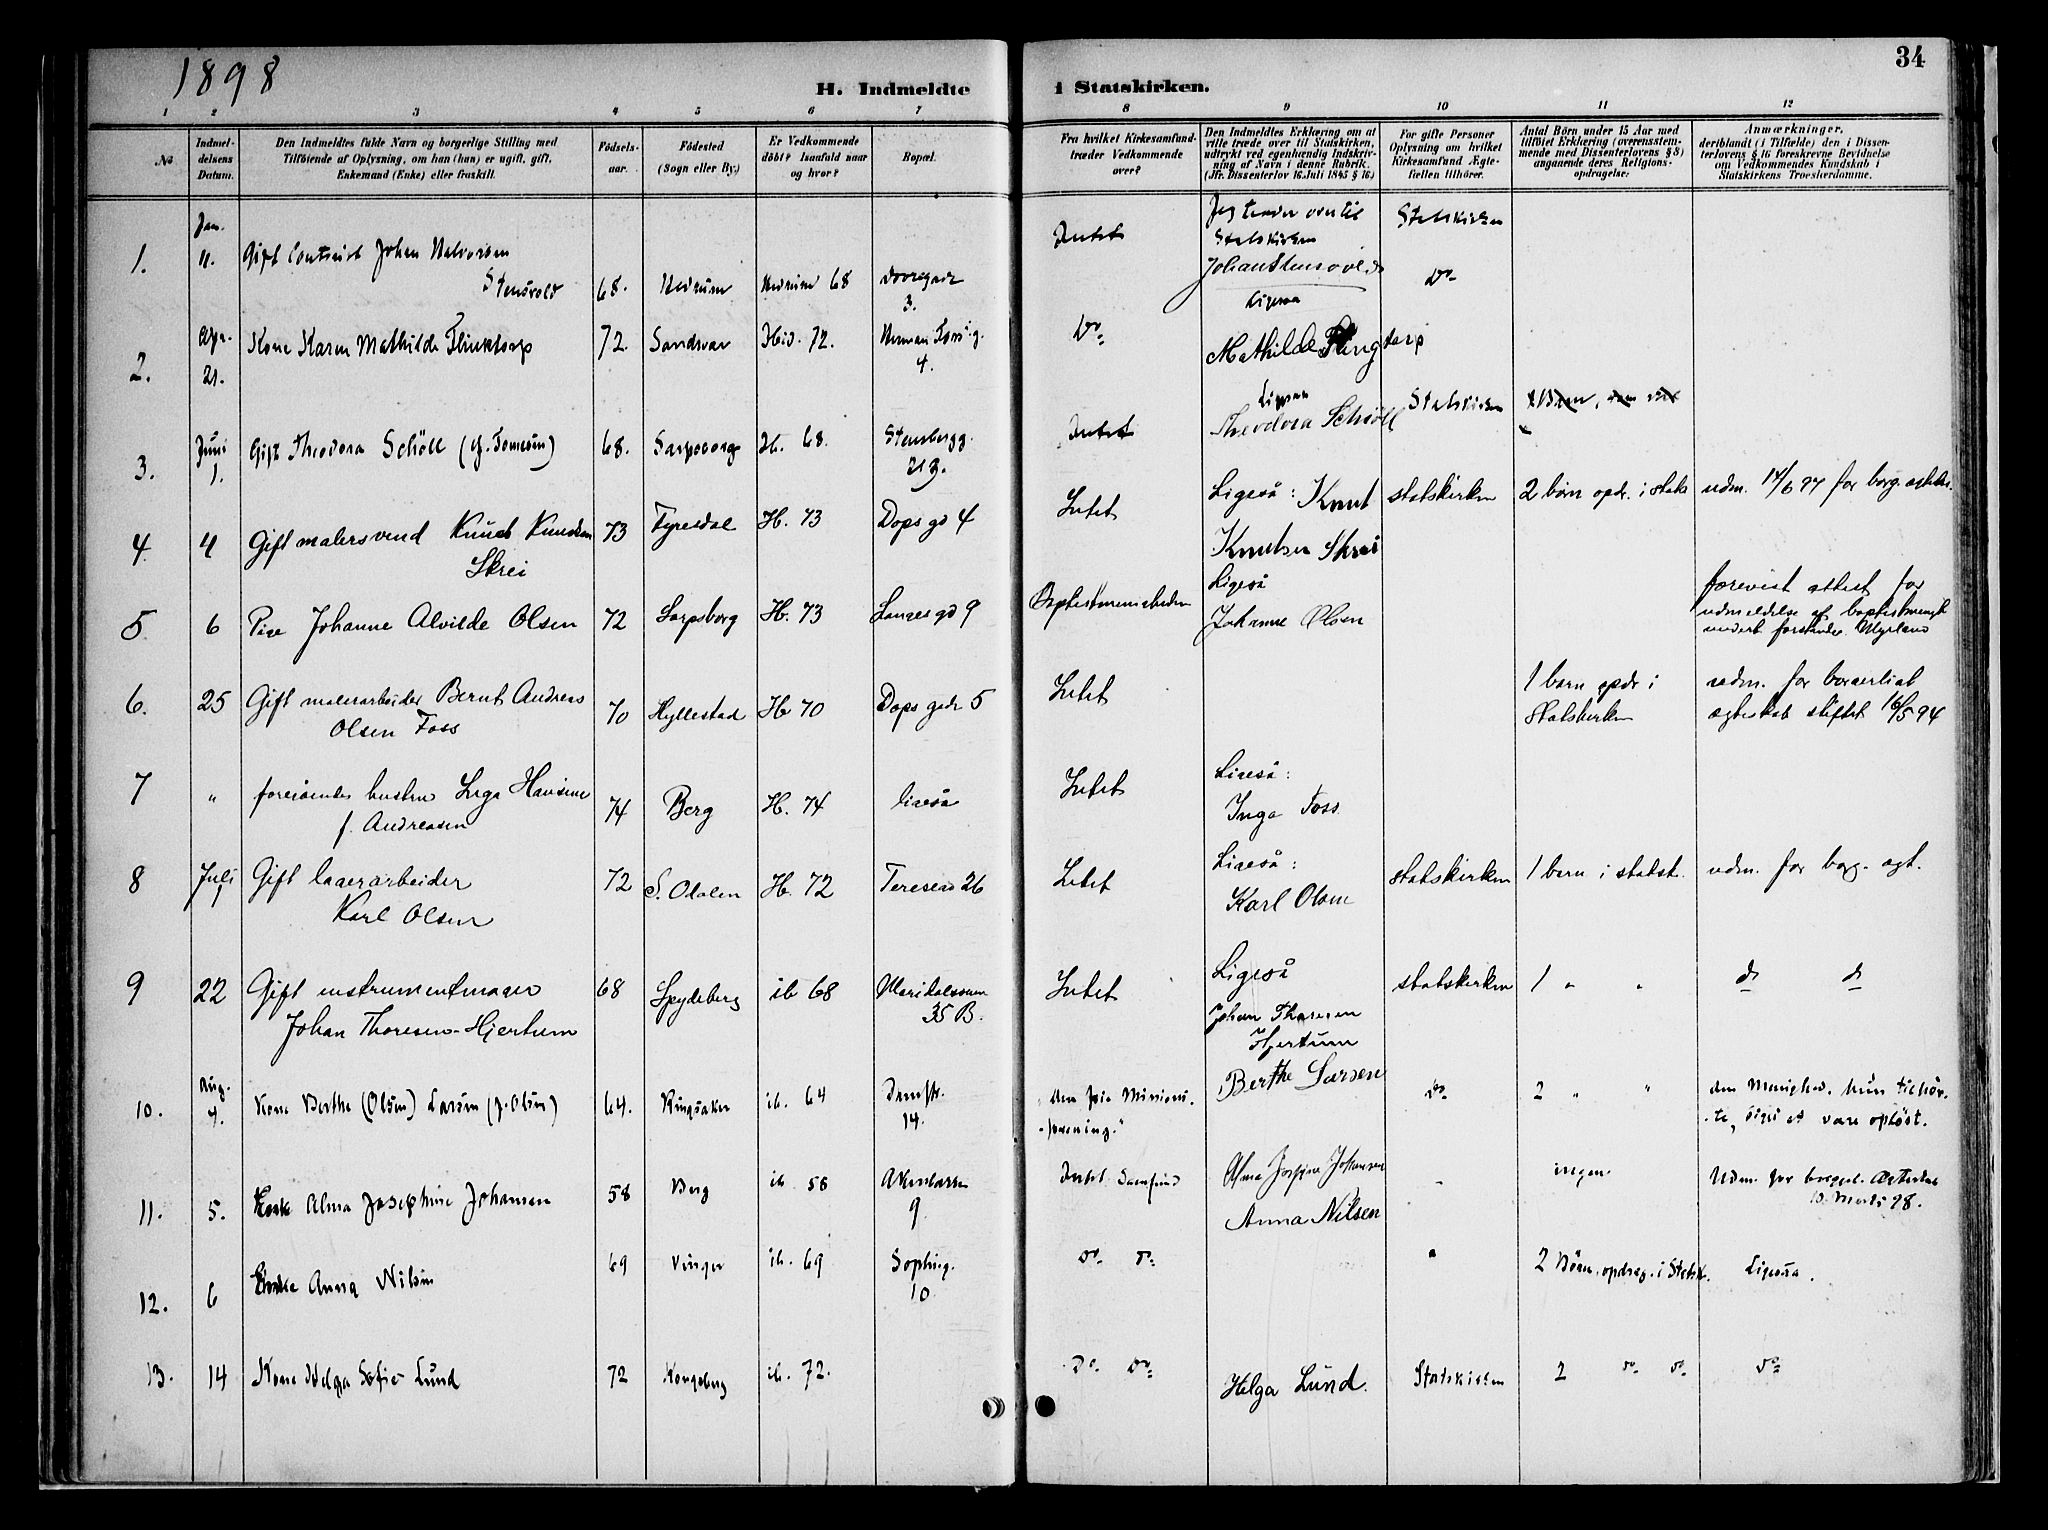 1898
34
H. Indmeldte i Statskirken.
1 2 3 4 5 6 7 8 9 10 11 12
No
Indmeldelsens Datum.
Den Indmeldtes fulde Navn og borgerlige Stilling med
Tilføiende af Oplysning, om han (hun) er ugift, gift,
Enkemand (Enke) eller fraskilt.
Fødselsaar.
Fødested
(Sogn eller By.)
Er Vedkommende
døbt? Isaafald naar
og hvor?
Bopæl.
Fra hvilket Kirkesamfund
træder Vedkommende
over?
Den Indmeldtes Erklæring om at
ville træde over til Statskirken,
udtrykt ved egenhændig Indskrivning af Navn i denne Rubrik.
(Jfr. Dissenterlov 16 Juli 1845 § 16)
For gifte Personer
Oplysning om hvilket
Kirkesamfund Ægtefællen tilhører.
Antal Børn under 15 Aar med
tilføiet Erklæring (overensstemmende med Dissenterlovens § 8)
angaaende deres Religionsopdragelse:
Anmærkninger,
deriblandt (i Tilfælde) den i Dissenterlovens § 16 foreskrevne Bevidnelse
om Vedkommendes Kundskab i
Statskirkens Troesherdømme.
1. Jan. 11. Gift Johan Halvorsen
Stensvold 68. Hedrum Hedrum 68 Dovregade 3.
Intet
Jeg træder over til
Statskirken
Johan Stensvold
Statskirken
Do
2. Apr. 21. Kone Karen Mathilde 72. Sandsvær Ibid. 72. 4.
Do
Ligesaa
Mathilde
3. Juni 1. Gift Theodora Schöll 68. Sarpsborg Ib. 68. Stensbergg. 213.
Intet
Ligesaa
Theodora Schöll
Statskirken
4. 4 Gift malersvend Knud Knudsen
Skrei 73 Fyresdal Ib. 73 Dops gd 4
Intet
Ligeså: Knut
Knutsen Skrei
statskirken
2 børn opdr. i statsk
udm. 17/6 97 for borg. ægtesk.
5. 6 Pige Johanne Alvilde Olsen 72 Sarpsborg Ib. 73 Langes gd 9
Baptistmenigheden
Ligeså
Johanne Olsen
forevist attest for
udmeldelse af baptistmenigh
forstander Myrland
6. 25 Gift malerarbeider Bernt Andreas
Olsen Foss 70 Hyllestad Ib 70 Dops gade 5
Intet
1 barn opdr i
statskirken
udm. for borgerligt
ægteskab stiftet 16/5 94
7 " foreiaendes hustru Inga Hansine
f. Andreasen 74 Berg Ib. 74 ligeså
Intet
Ligeså:
Inga Foss
8 Juli 1 Gift lagerarbeider
Karl Olsen 72 S. Odalen Ib. 72 Teresesgd 26
Intet
Ligeså:
Karl Olsen
statskirken
1 barn i statsk.
udm. for borg. ægt.
9 22 Gift instrumentmager
Johan Thoresen-Hjertum 68 Spydeberg ib 68 Maridalsveien
35 B.
Intet
Ligeså
Johan Thoresen
Hjertum
statskirken
1 " "
do do
10. Aug. 4. Kone Berthe (Olsen) Larsen (f. Olsen) 64. Ringsaker ib. 64 14.
"den frie Missionsforening."
Berthe Larsen
Do
2 " "
den Menighed, hun tilhørte, siges at være opløst.
11. 5. Enke Alma Josephine Johansen 58 Berg ib 58 Akersbakken
9
Intet Samfund
Alma Josefine Johansen
-
ingen
Udm. for borgerl. Ægteskab
10. Marts 78.
12. 6 Enke Anna Nilsen 69 Vinger ib. 69 Sophieg.
10
Do Do
Anna Nilsen
"
2 Børn, opdrag. i Statsk.
Ligesaa.
13. 14 Kone Helga Sofie Lund 72 Kongsberg ib. 72.
Do Do
Helga Lund.
Statskirken
2 Do Do
Do